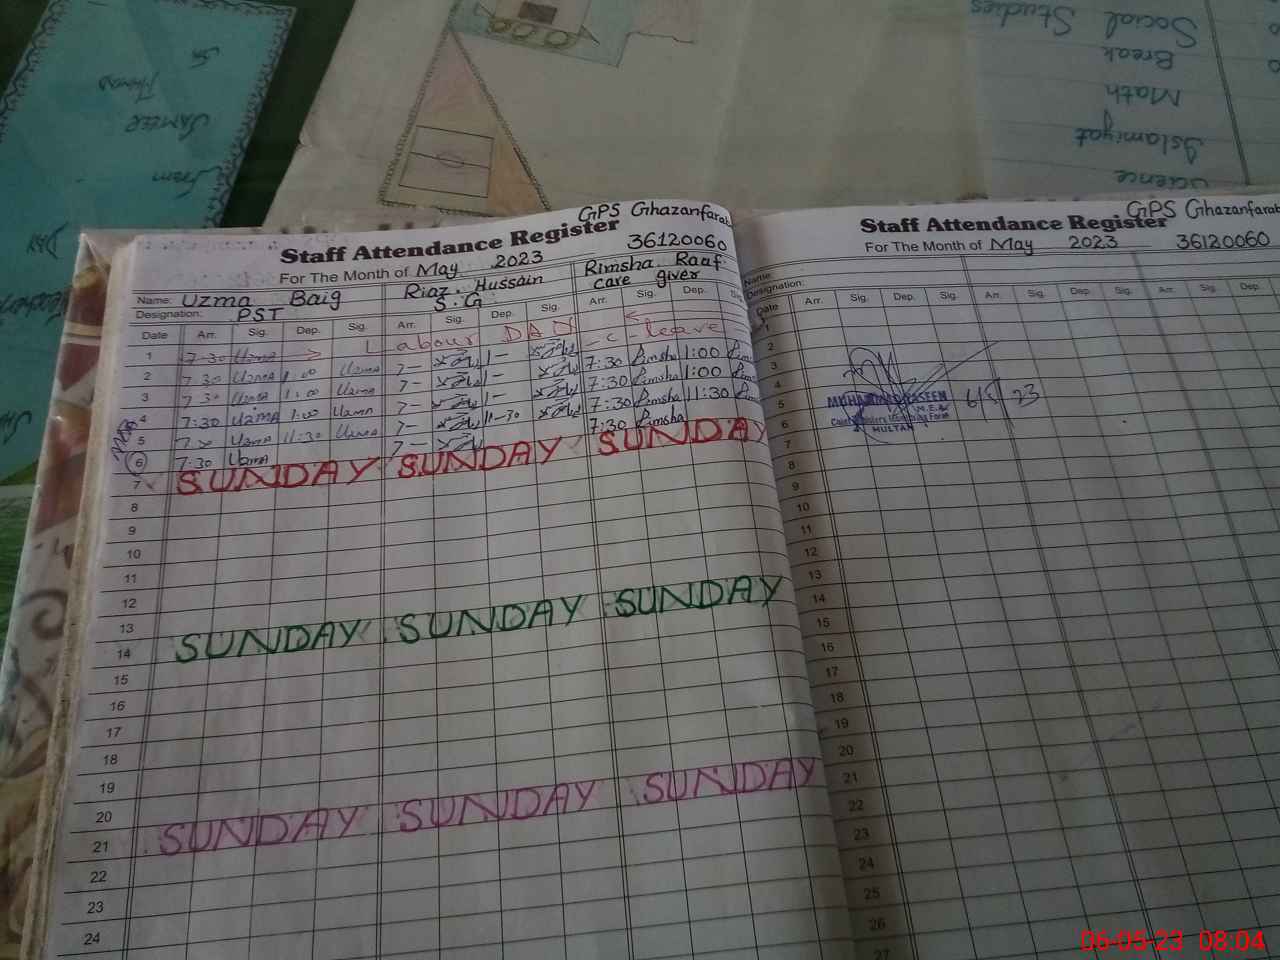 Social Studies
Break
Math
Islamiyat
Science
SAMEER
From
DAY
GPS Ghazanfarab
Staff Attendance Register
36120060
For The Month of May 2023
Name: Uzma Baig Riaz Hussain Rimsha Raaf
Designation: PST S.G care giver
Date Arr. Sig. Dep. Sig. Arr. Sig. Dep. Sig. Arr. Sig. Dep.
1 7-30 Uzma Labour DAY - c - leave
2 7.30 Uzma 1:00 Uzma 7- 1- 7:30 Rimsha 1:00
3 7.30 Uzma 1:00 Uzma 7- 1- 7:30 Rimsha 1:00
4 7:30 Uzma 1:00 Uzma 7- 1- 7:30 Rimsha
5 7.30 Uzma 11:30 Uzma 7- 11-30 7:30 Rimsha 11:30
6 7.30 Uzma 7- 7:30 Rimsha
7 SUNDAY SUNDAY SUNDAY
8
9
10
11
12
13
14 SUNDAY SUNDAY SUNDAY
15
16
17
18
19
20
21 SUNDAY SUNDAY SUNDAY
22
23
24
GPS Ghazanfarab
Staff Attendance Register
For The Month of May 2023 36120060
Name
Designation:
Date Arr. Sig. Dep. Sig. Arr. Sig. Dep. Sig. Arr. Sig. Dep.
1
2
3
4
5
6 M.E.A
7 MULTAN
6/5/23
8
9
10
11
12
13
14
15
16
17
18
19
20
21
22
23
24
25
26
27
06-05-23 08:04